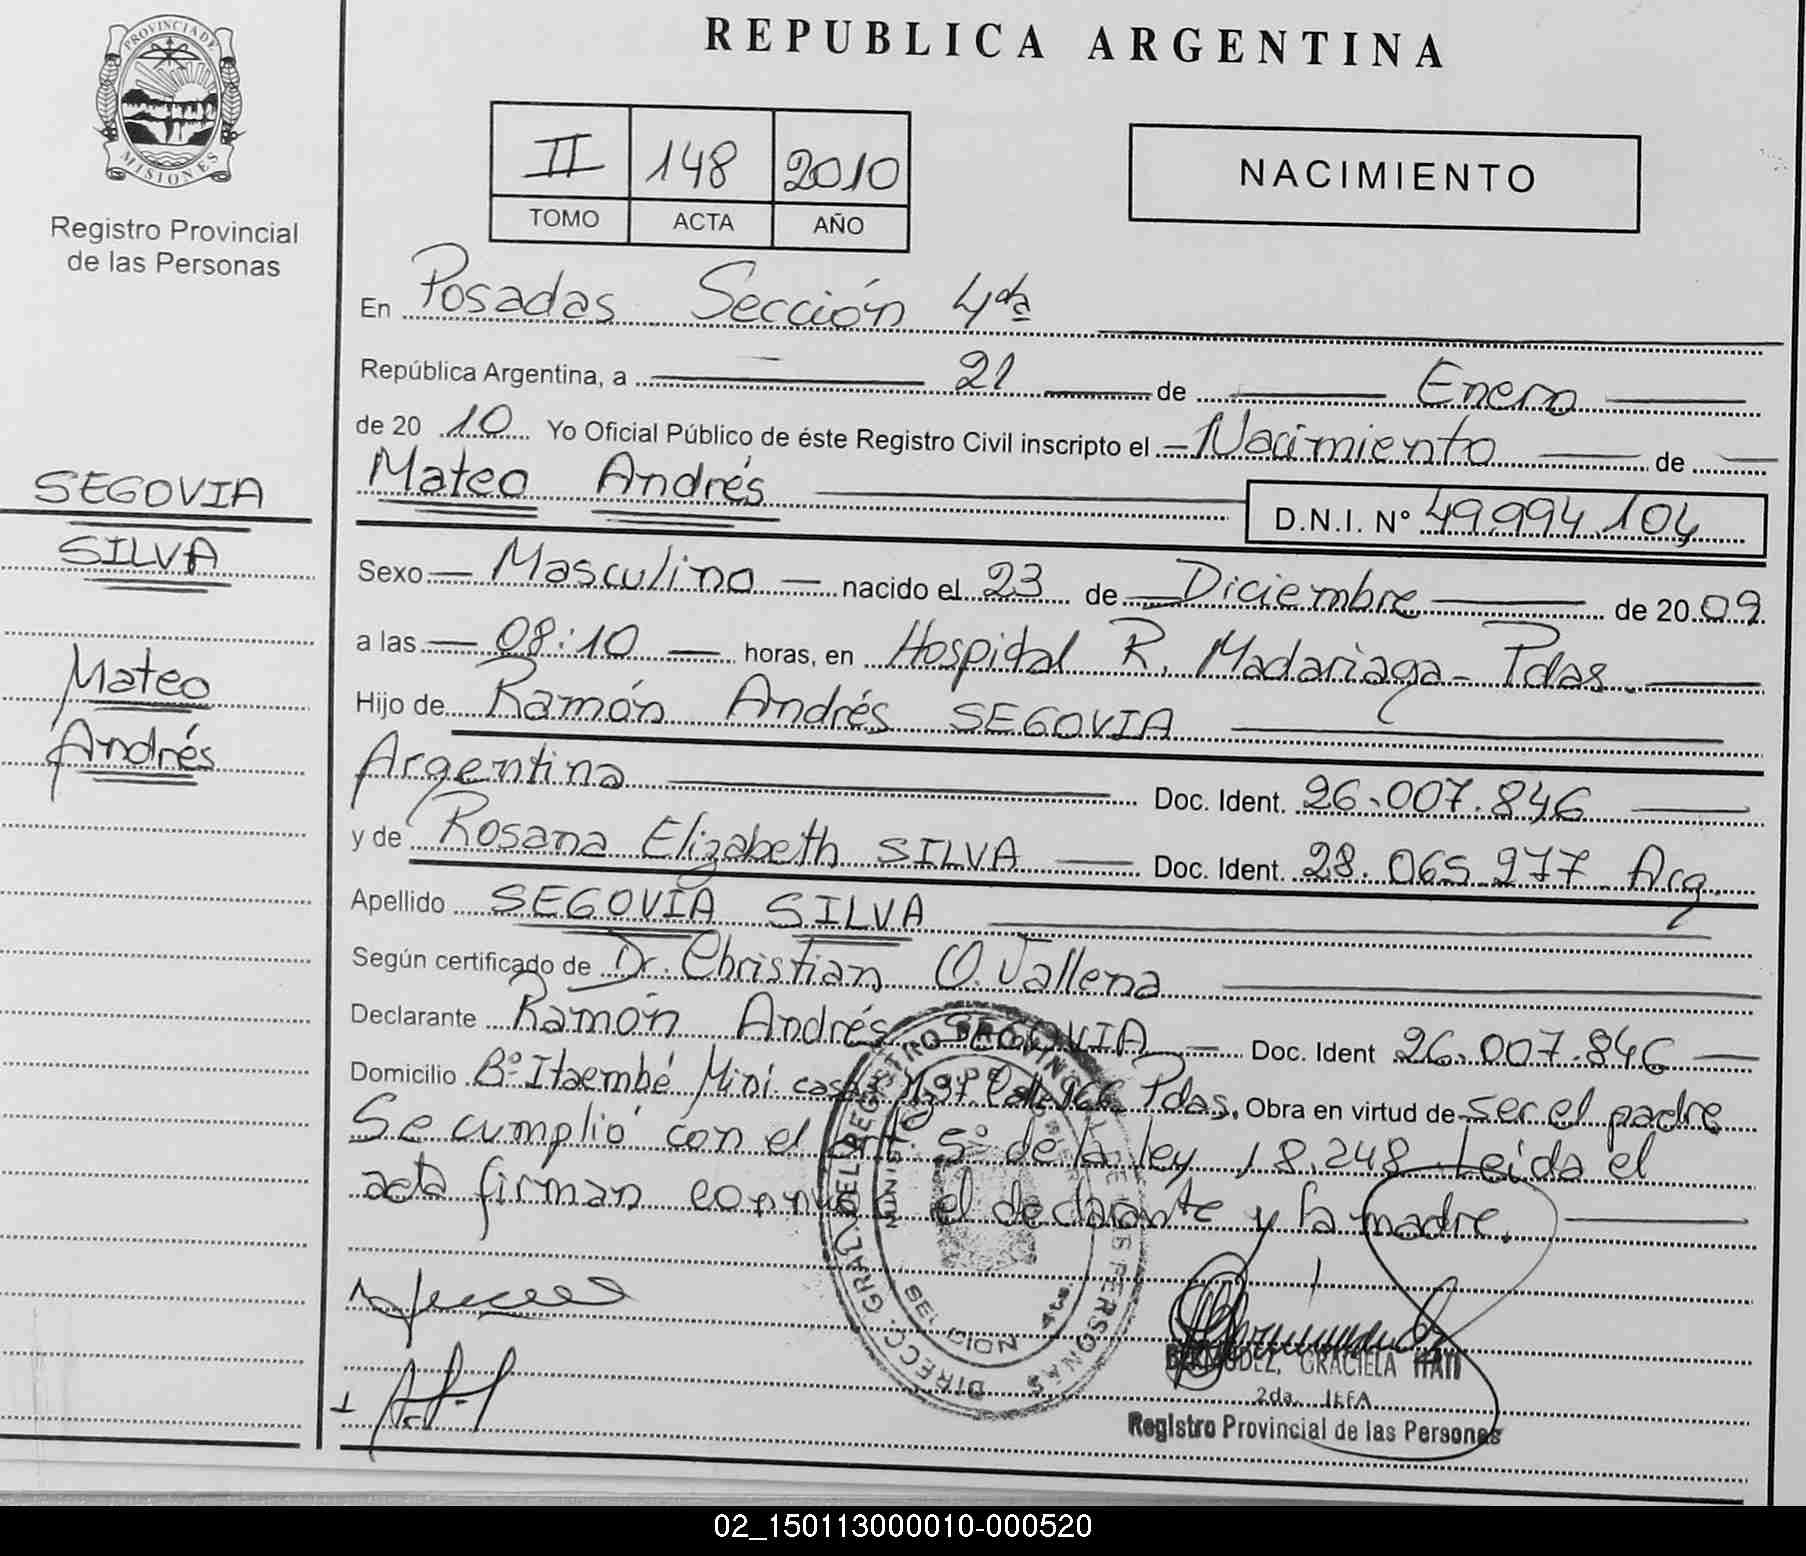 PROVINCIA DE
MISIONES
Registro Provincial
de las Personas
SEGOVIA
SILVA
Mateo
Andrés
REPUBLICA ARGENTINA
II 148 2010
TOMO ACTA AÑO
NACIMIENTO
En Posadas Sección 4ta
República Argentina, a 21 de Enero
de 2010 Yo Oficial Público de éste Registro Civil inscripto el Nacimiento de
Mateo Andrés D.N.I. Nº 49.994.104
Sexo Masculino nacido el 23 de Diciembre de 2009
a las 08:10 horas, en Hospital R. Madariaga - Pdas.
Hijo de Ramón Andrés SEGOVIA
Argentina Doc. Ident. 26.007.846
y de Rosana Elizabeth SILVA Doc. Ident. 28.065.977 Arg.
Apellido SEGOVIA SILVA
Según certificado de Dr. Christian O. Vallena
Declarante Ramón Andrés SEGOVIA Doc. Ident 26.007.846
Domicilio Bº Itaembé Mini casa Pdas. Obra en virtud de ser el padre
Se cumplió con el art. 5º de la ley 18.248 Leida el
acta firman conmigo el declarante y la madre.
DIRECC. GRAL. DEL REGISTRO PROVINCIAL DE LAS PERSONAS
SECCION 4ta.
GRACIELA
2da. JEFA
Registro Provincial de las Personas
02_150113000010-000520